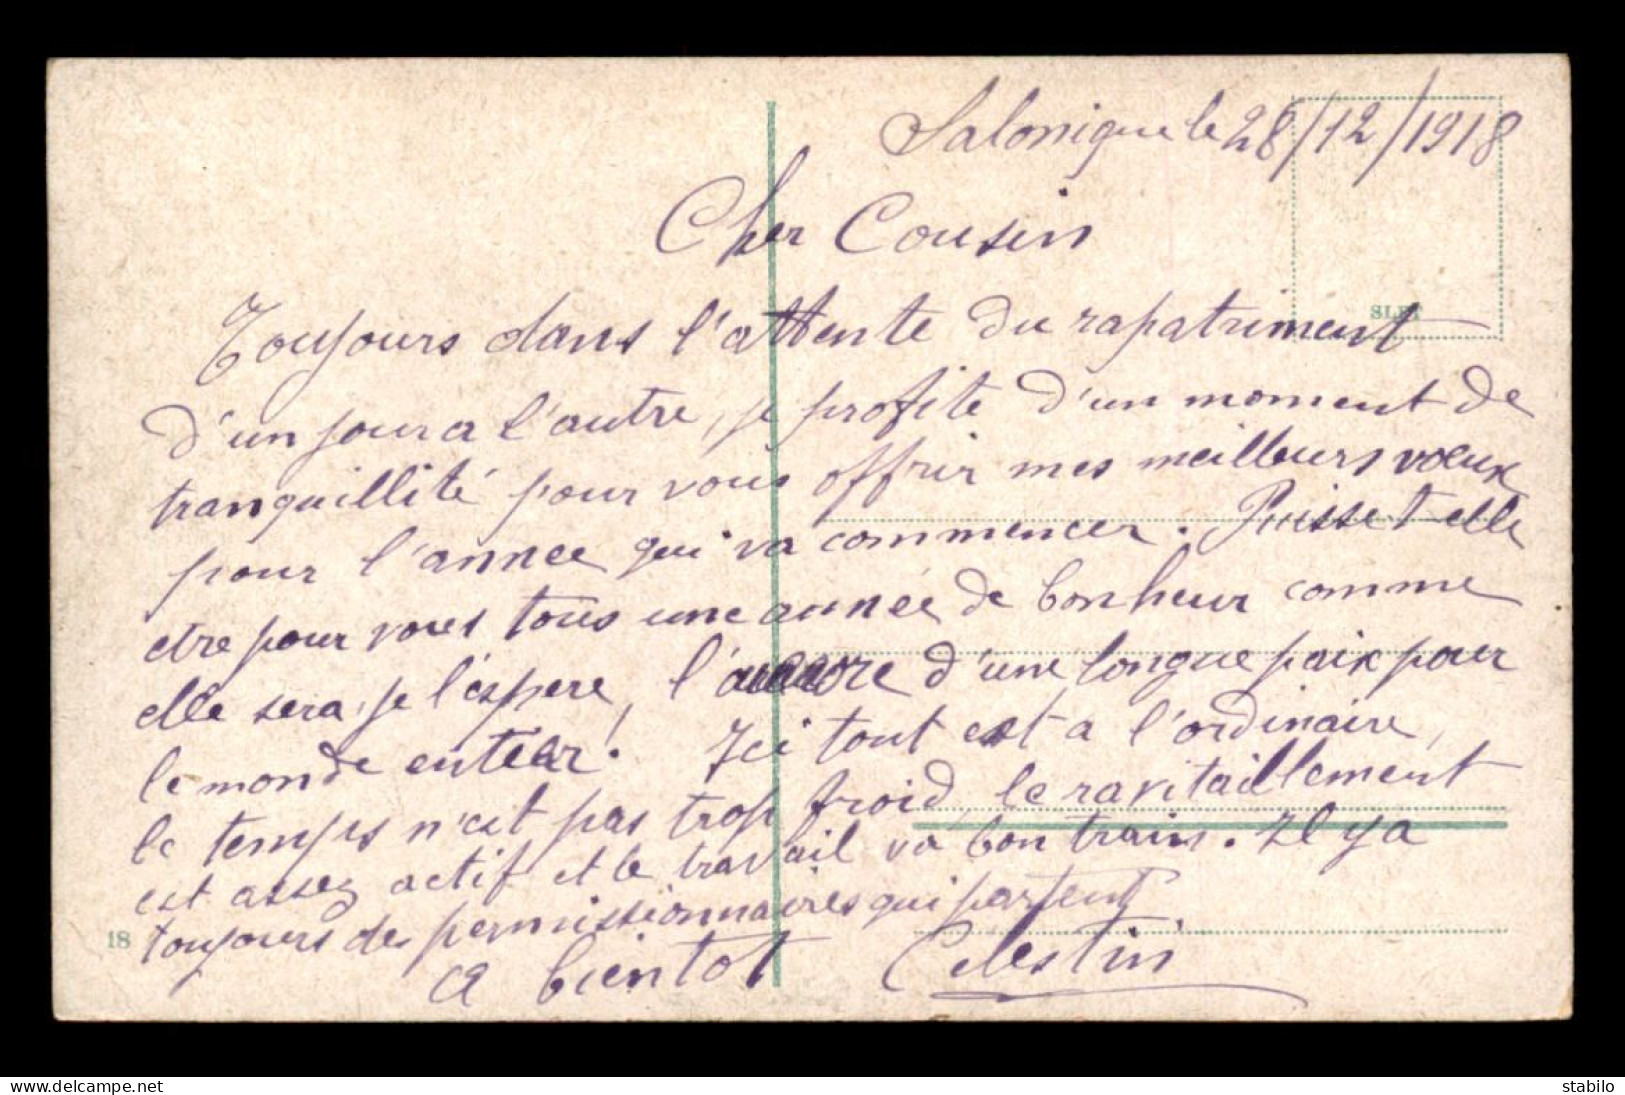 Salonique le 28/12/1918
Cher Cousin
Toujours dans l'attente du rapatriment
d'un jour a l'autre, je profite d'un moment de
tranquillité pour vous offrir mes meilleurs vœux
pour l'année qui va commencer. Puisse t elle
etre pour vous tous une année de bonheur comme
elle sera, je l'espere, l'aurore d'une longue paix pour
le monde entier! Ici tout est a l'ordinaire,
le temps n'est pas trop froid, le ravitaillement
est assez actif et le travail va bon train. Il y a
toujours des permissionnaires qui partent.
a bientot Celestin
18
delcampe.net
stabilo